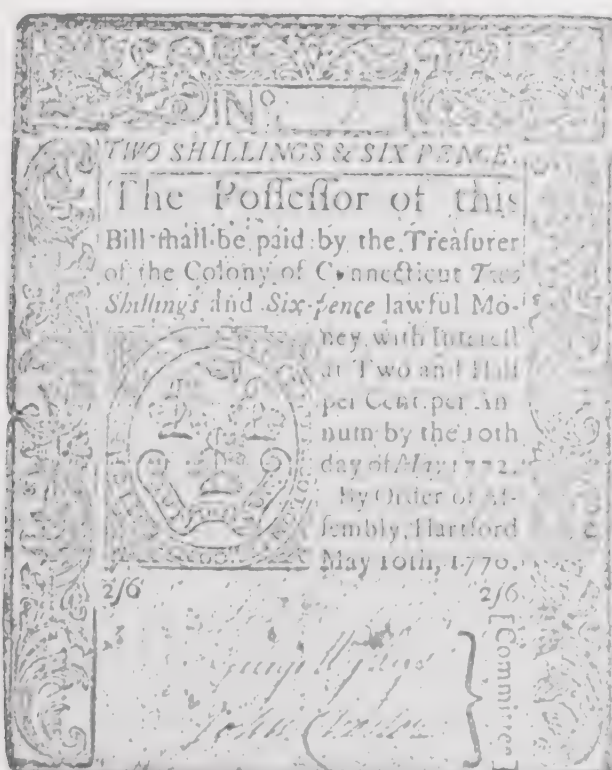 No
TWO SHILLINGS & SIX PENCE.
The Poſſeſſor of this
Bill ſhall be paid by the Treaſurer
of the Colony of Connecticut Two
Shillings and Six-pence lawful Mo-
ney, with Intereſt
at Two and Half
per Cent. per An-
num by the 10th
day of May 1772.
By Order of Aſ-
ſembly, Hartford
May 10th, 1770.
2/6 2/6
[Committee]
John